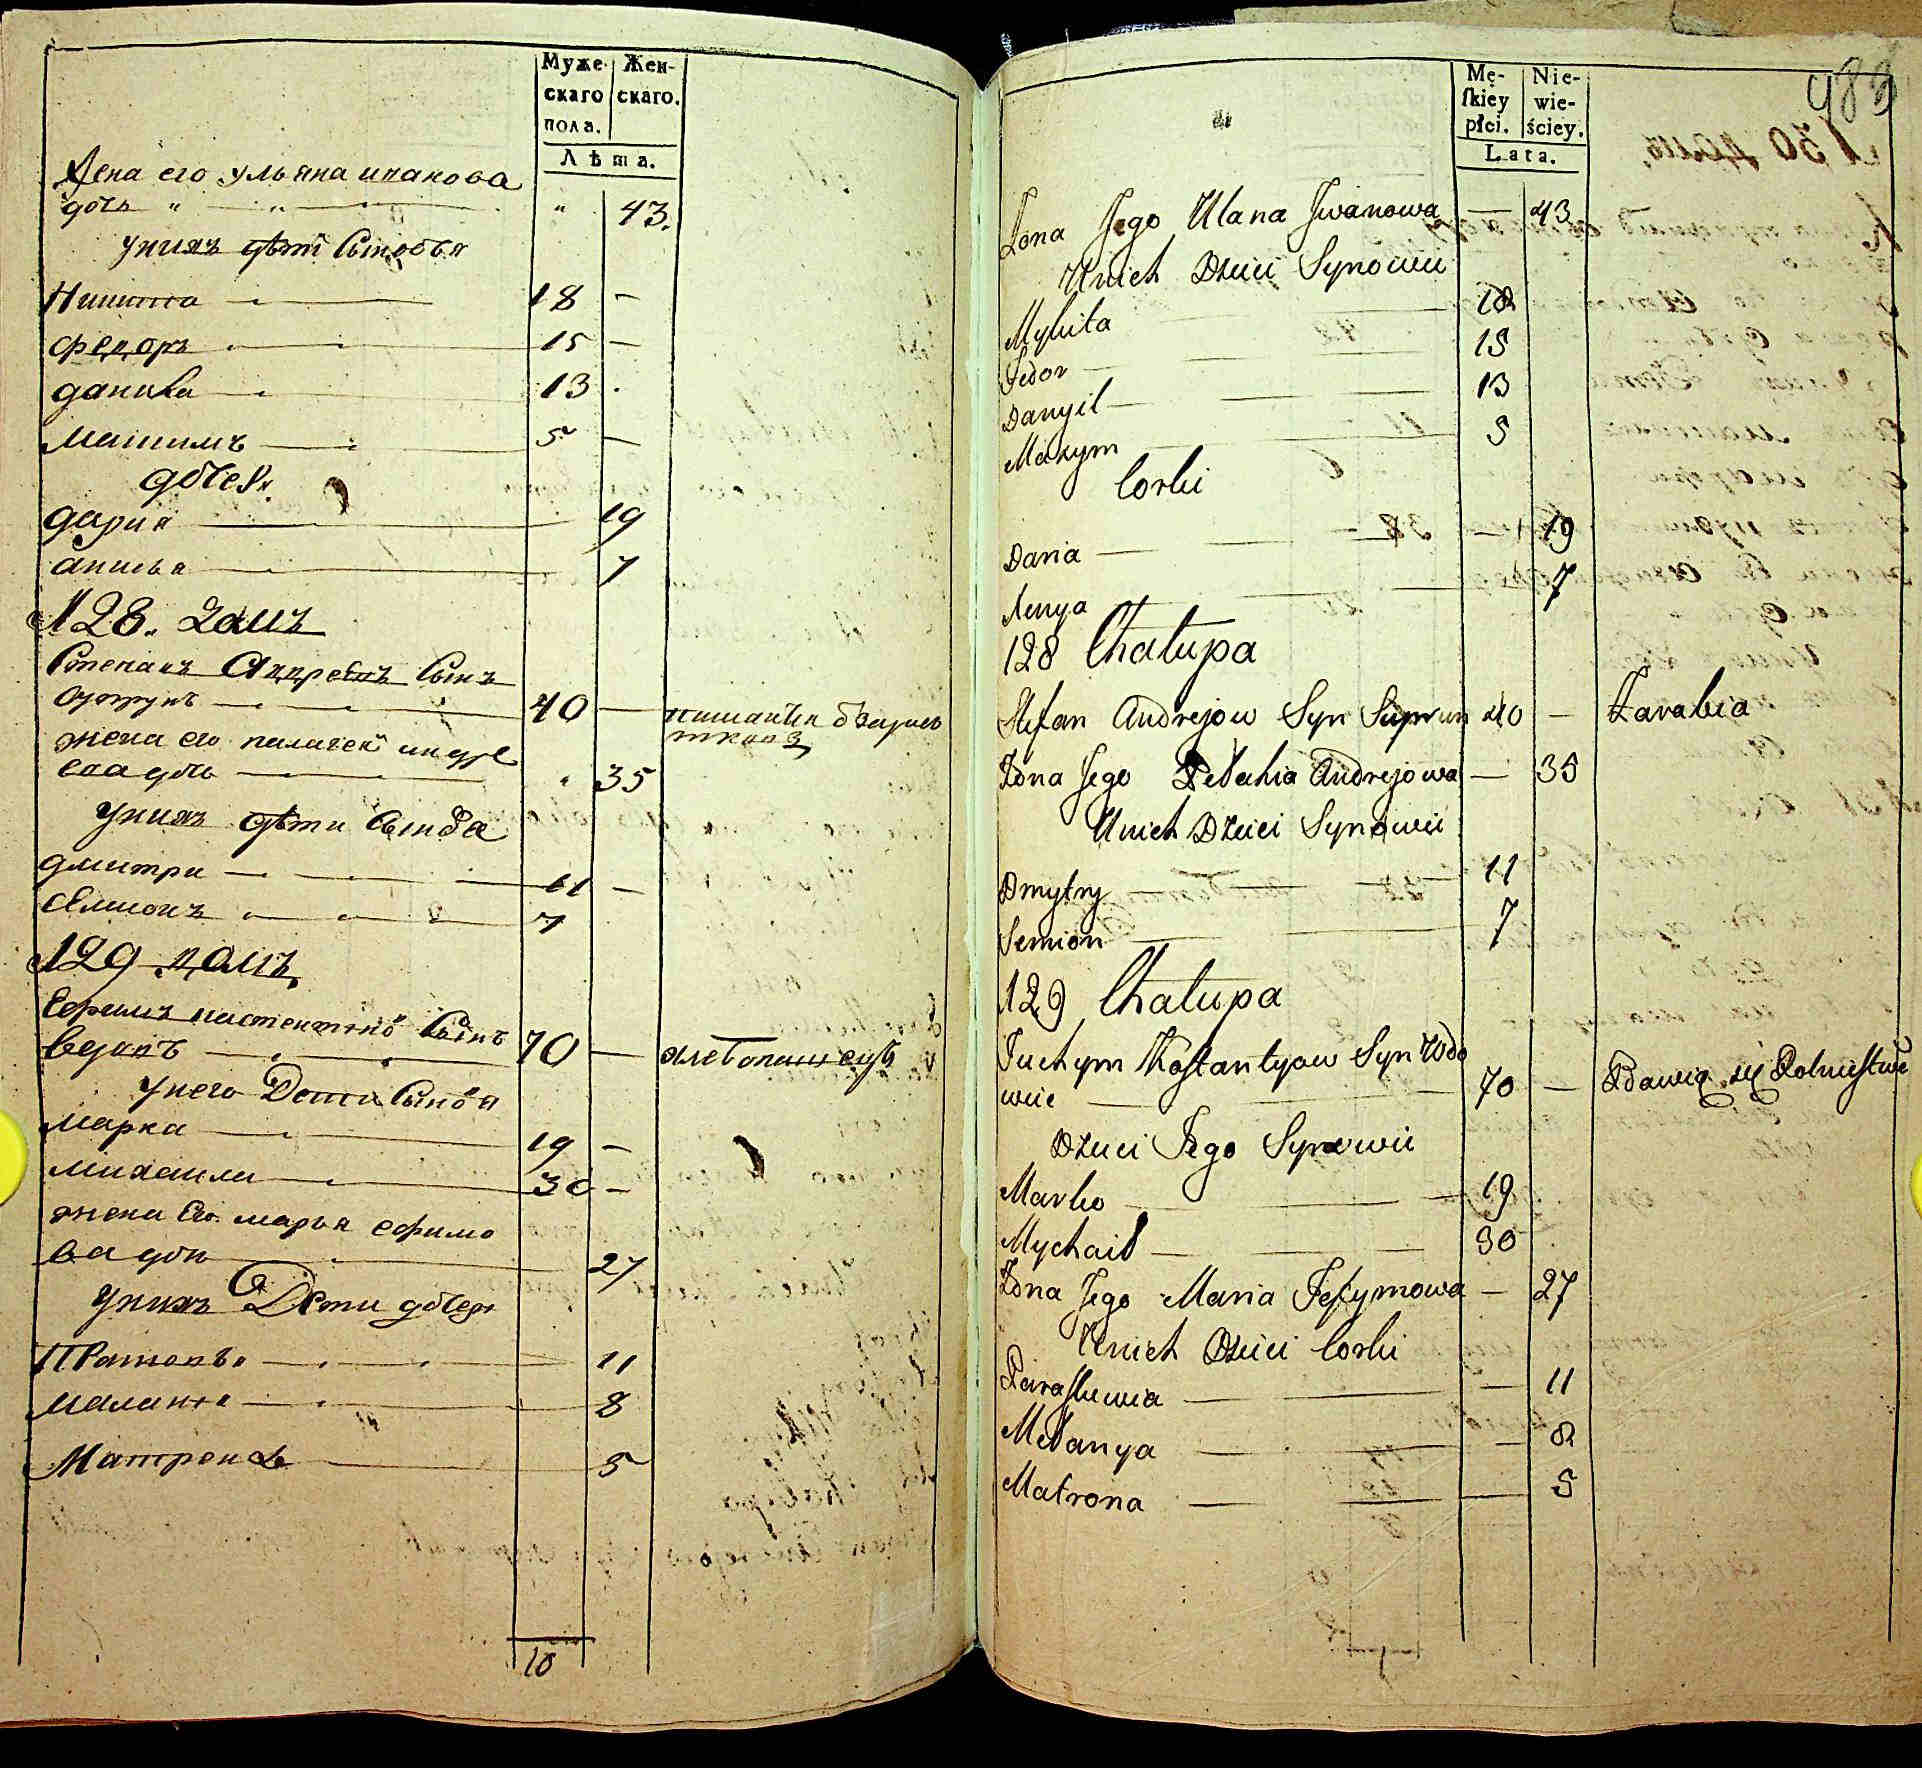 Муже- Жен-
скаго скаго.
пола.
Лѣта.
Жена его ульяна иванова
дочь " " " 43.
у них дѣти Сыновья
Никита 18 —
Федоръ 15 —
данила 13
Максимъ 5 —
дочери
дария 19
анисья 7
№ 128. домъ
Степанъ Андреевъ Сынъ
40 —
жена его палагея андре
ева дочь " 35
у них дѣти Сынов
дмитри 11 —
Семионъ 7
№ 129 домъ
Ефимъ Сынъ
вдовъ 70 —
у него Дети Сынов
марка 19 —
михаила 30 —
жена Его марья ефимо
ва доч 27
у них Дети дочер
11
маланя 8
Матрена 5
10
983
Mę- Nie-
ſkiey wie-
płci. ściey.
Lata.
Żona Jego Ulana Jwanowa — 43
Unich Dzieci Synowie
Mykita 18
Fedor 15
Danyił 13
Maxym 5
Corki
Daria — 19
7
128 Chałupa
Stefan Andrejow Syn Suprun 40 — Zarabia
Żona Jego Pełahia Andrejowa — 35
Unich Dzieci Synowie
Dmytry 11
Semion 7
129 Chałupa
Juchym Kostantyow Syn Wdo
wiec 70 — Bawią się Rolnictwe
Dzieci Jego Synowie
Marko 19
Mychaił 30
Żona Jego Maria Jefymowa — 27
Unich Dzieci Corki
Paraskiewia — 11
Mełanya — 8
Matrona — 5